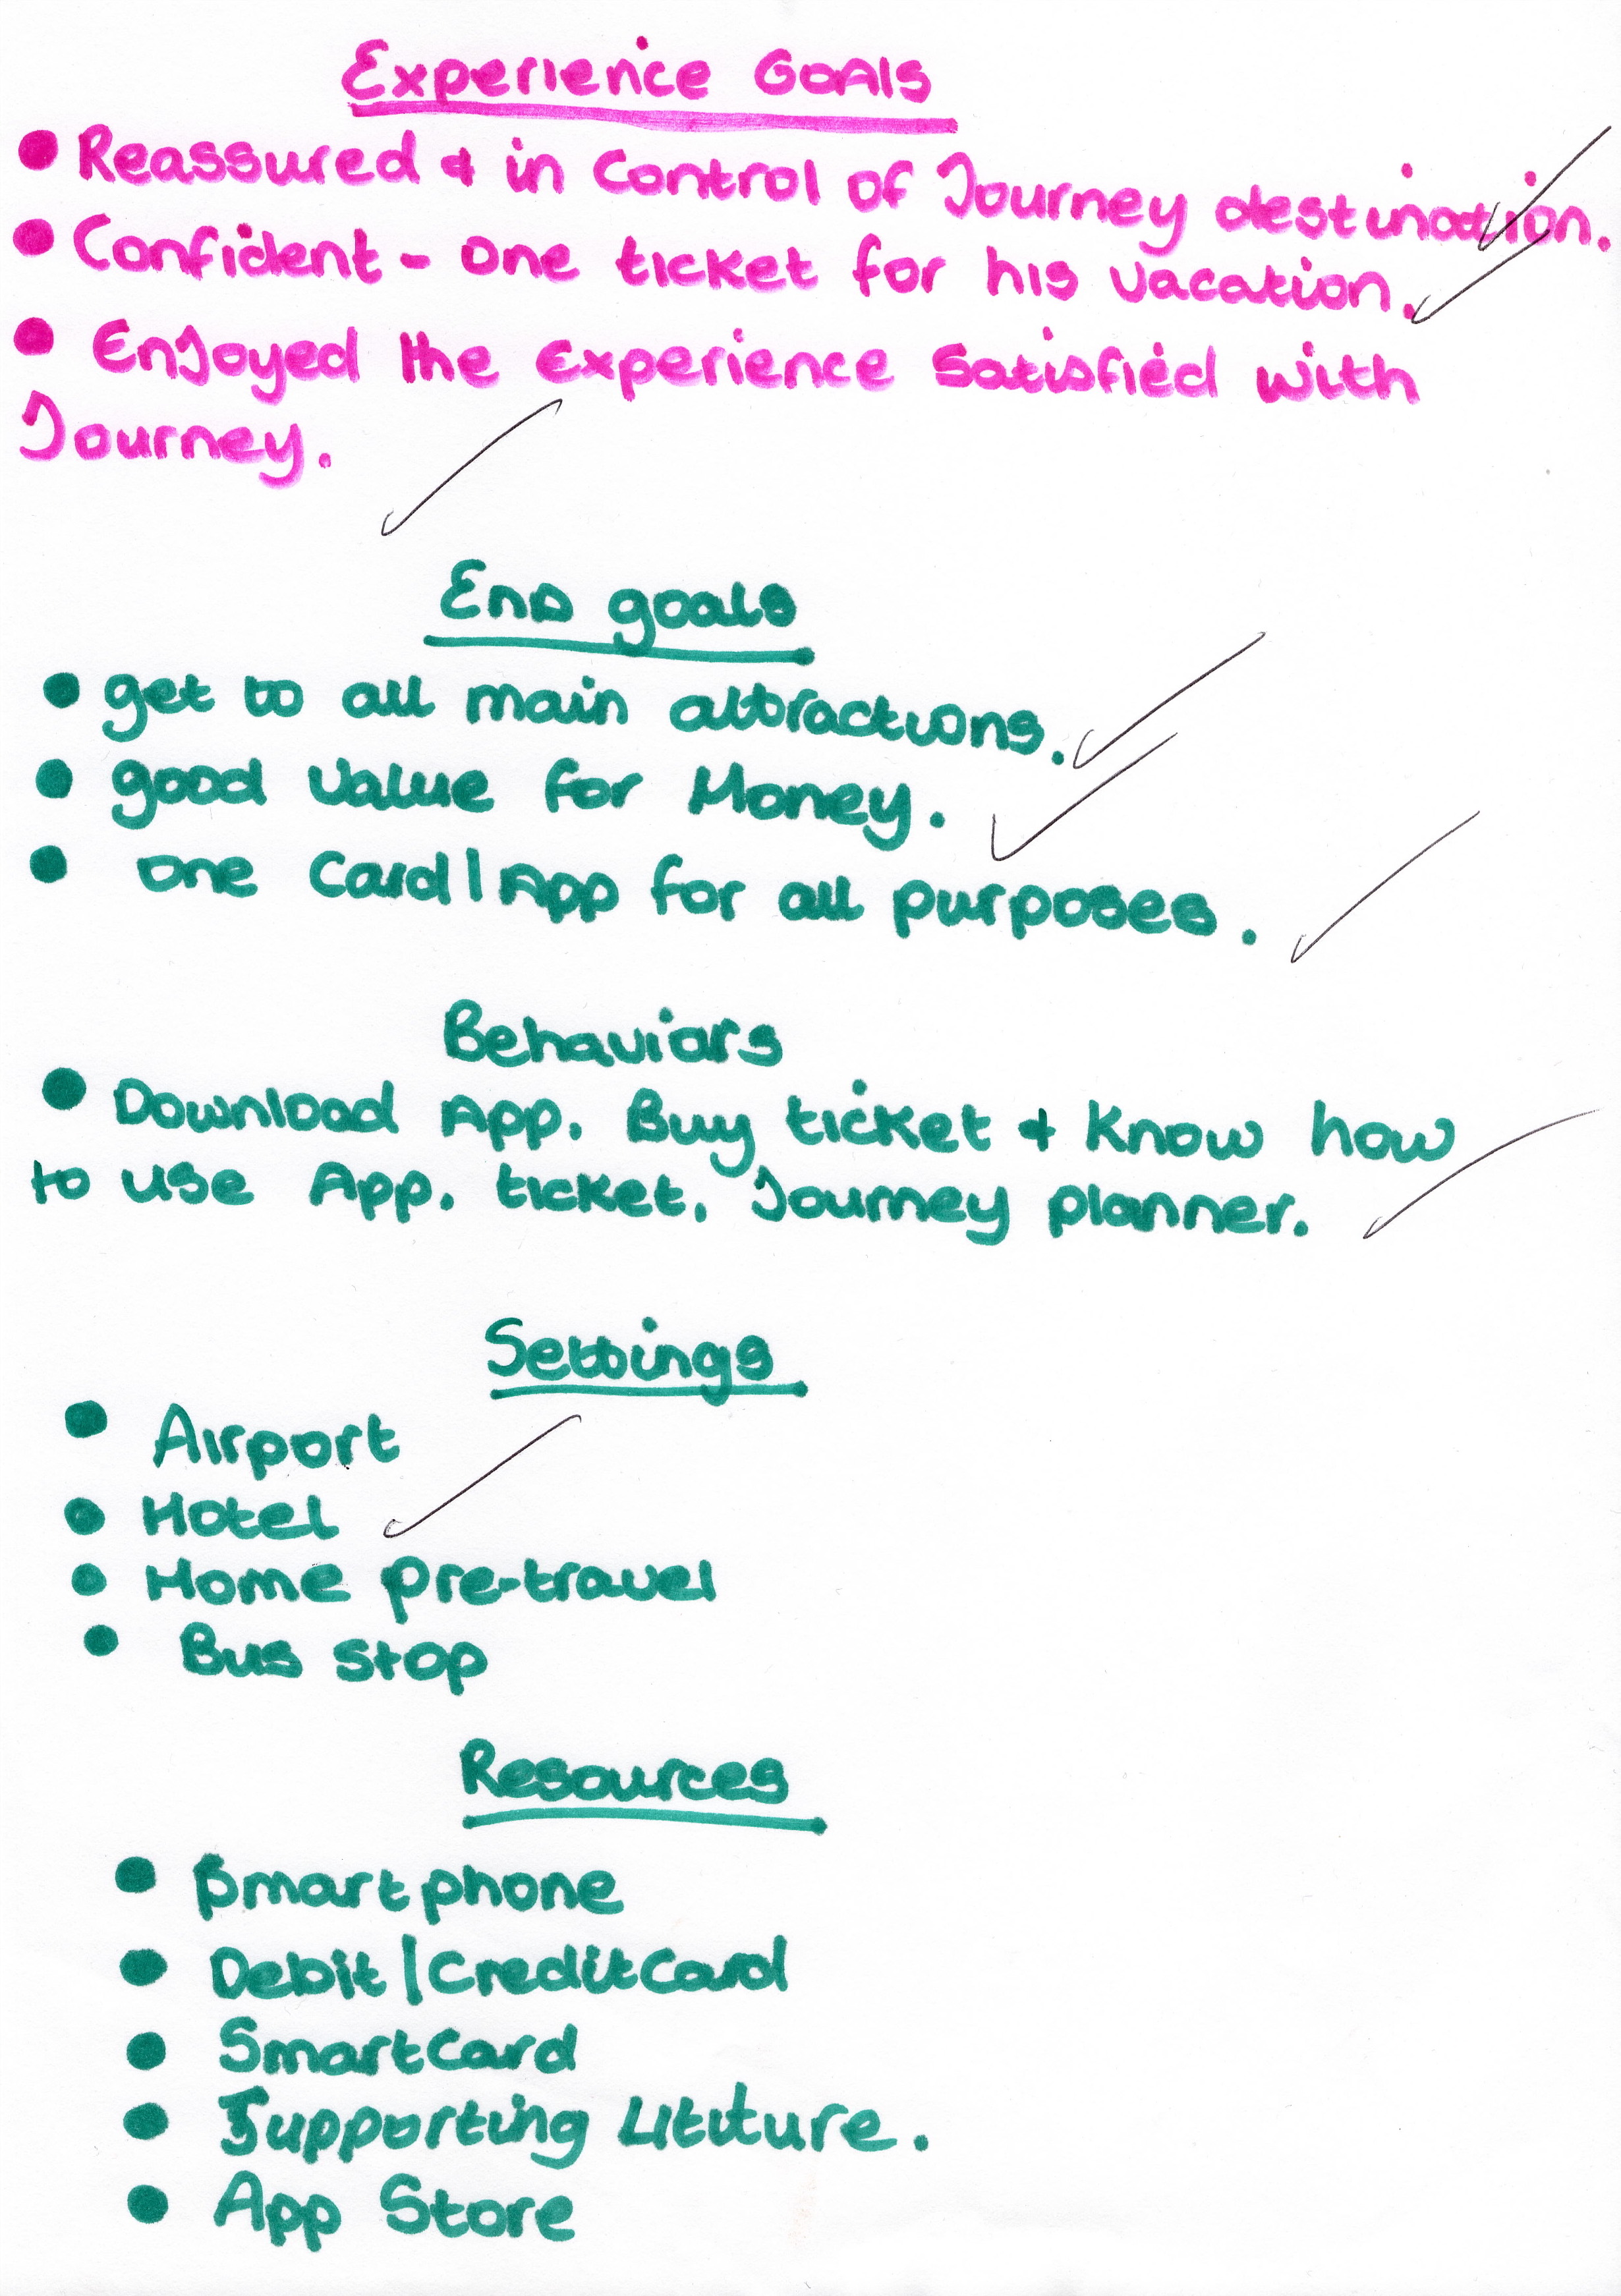 Experience Goals
• Reassured & in control of Journey destination.
• Confident - one ticket for his vacation.
• Enjoyed the Experience Satisfied with
Journey.
End goals
• get to all main attractions.
• good value for Money.
• one Card/App for all purposes.
Behaviors
• Download App. Buy ticket & know how
to use App. ticket. Journey planner.
Settings
• Airport
• Hotel
• Home pre-travel
• Bus stop
Resources
• Smartphone
• Debit/CreditCard
• SmartCard
• Supporting Lititure.
• App Store